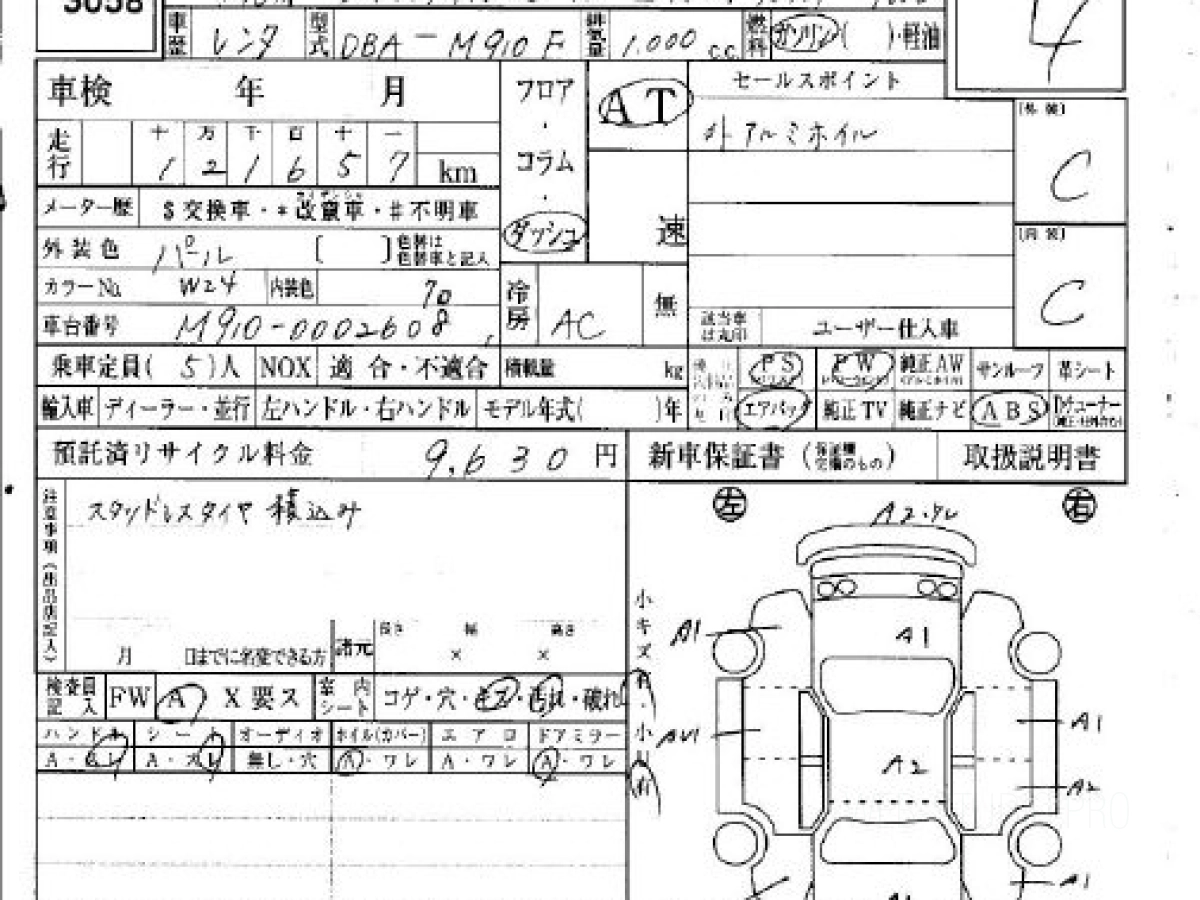 3058
車歴 レンタ 型式 DBA-M910F 排気量 1.000 c.c. 燃料 ガソリン( )・軽油
4
車検 年 月
フロア・コラム・ダッシュ
AT
速
セールスポイント
外アルミホイル
[外装]
C
走行 十 万 千 百 十 一
1 2 1 6 5 7 km
メーター歴 $交換車・*改竄車・#不明車
外装色 パール [ ]色替は色替車と記入
[内装]
C
カラーNo. W24 内装色 70
冷房 AC 無
車台番号 M910-0002608
該当車は丸印 ユーザー仕入車
乗車定員( 5)人 NOX 適合・不適合 積載量 kg
PS PW 純正AW サンルーフ 革シート
輸入車 ディーラー・並行 左ハンドル・右ハンドル モデル年式( )年
エアバッグ 純正TV 純正ナビ ABS Dチューナー
預託済リサイクル料金 9,630円
新車保証書 取扱説明書
注意事項(出品店記入)
スタッドレスタイヤ 積込み
左 右
A2・ワレ
月 日までに名変できる方 諸元 長さ × 幅 × 高さ
検査員記入 FW A X要ス 室内シート コゲ・穴・キズ・汚れ・破れ
ハンドル シート オーディオ ホイル(カバー) エアロ ドアミラー
A・スレ A・スレ 無し・穴 A・ワレ A・ワレ A・ワレ
小キズ有・小凹有
A1
A1
AU1
A1
A2
A2
A1